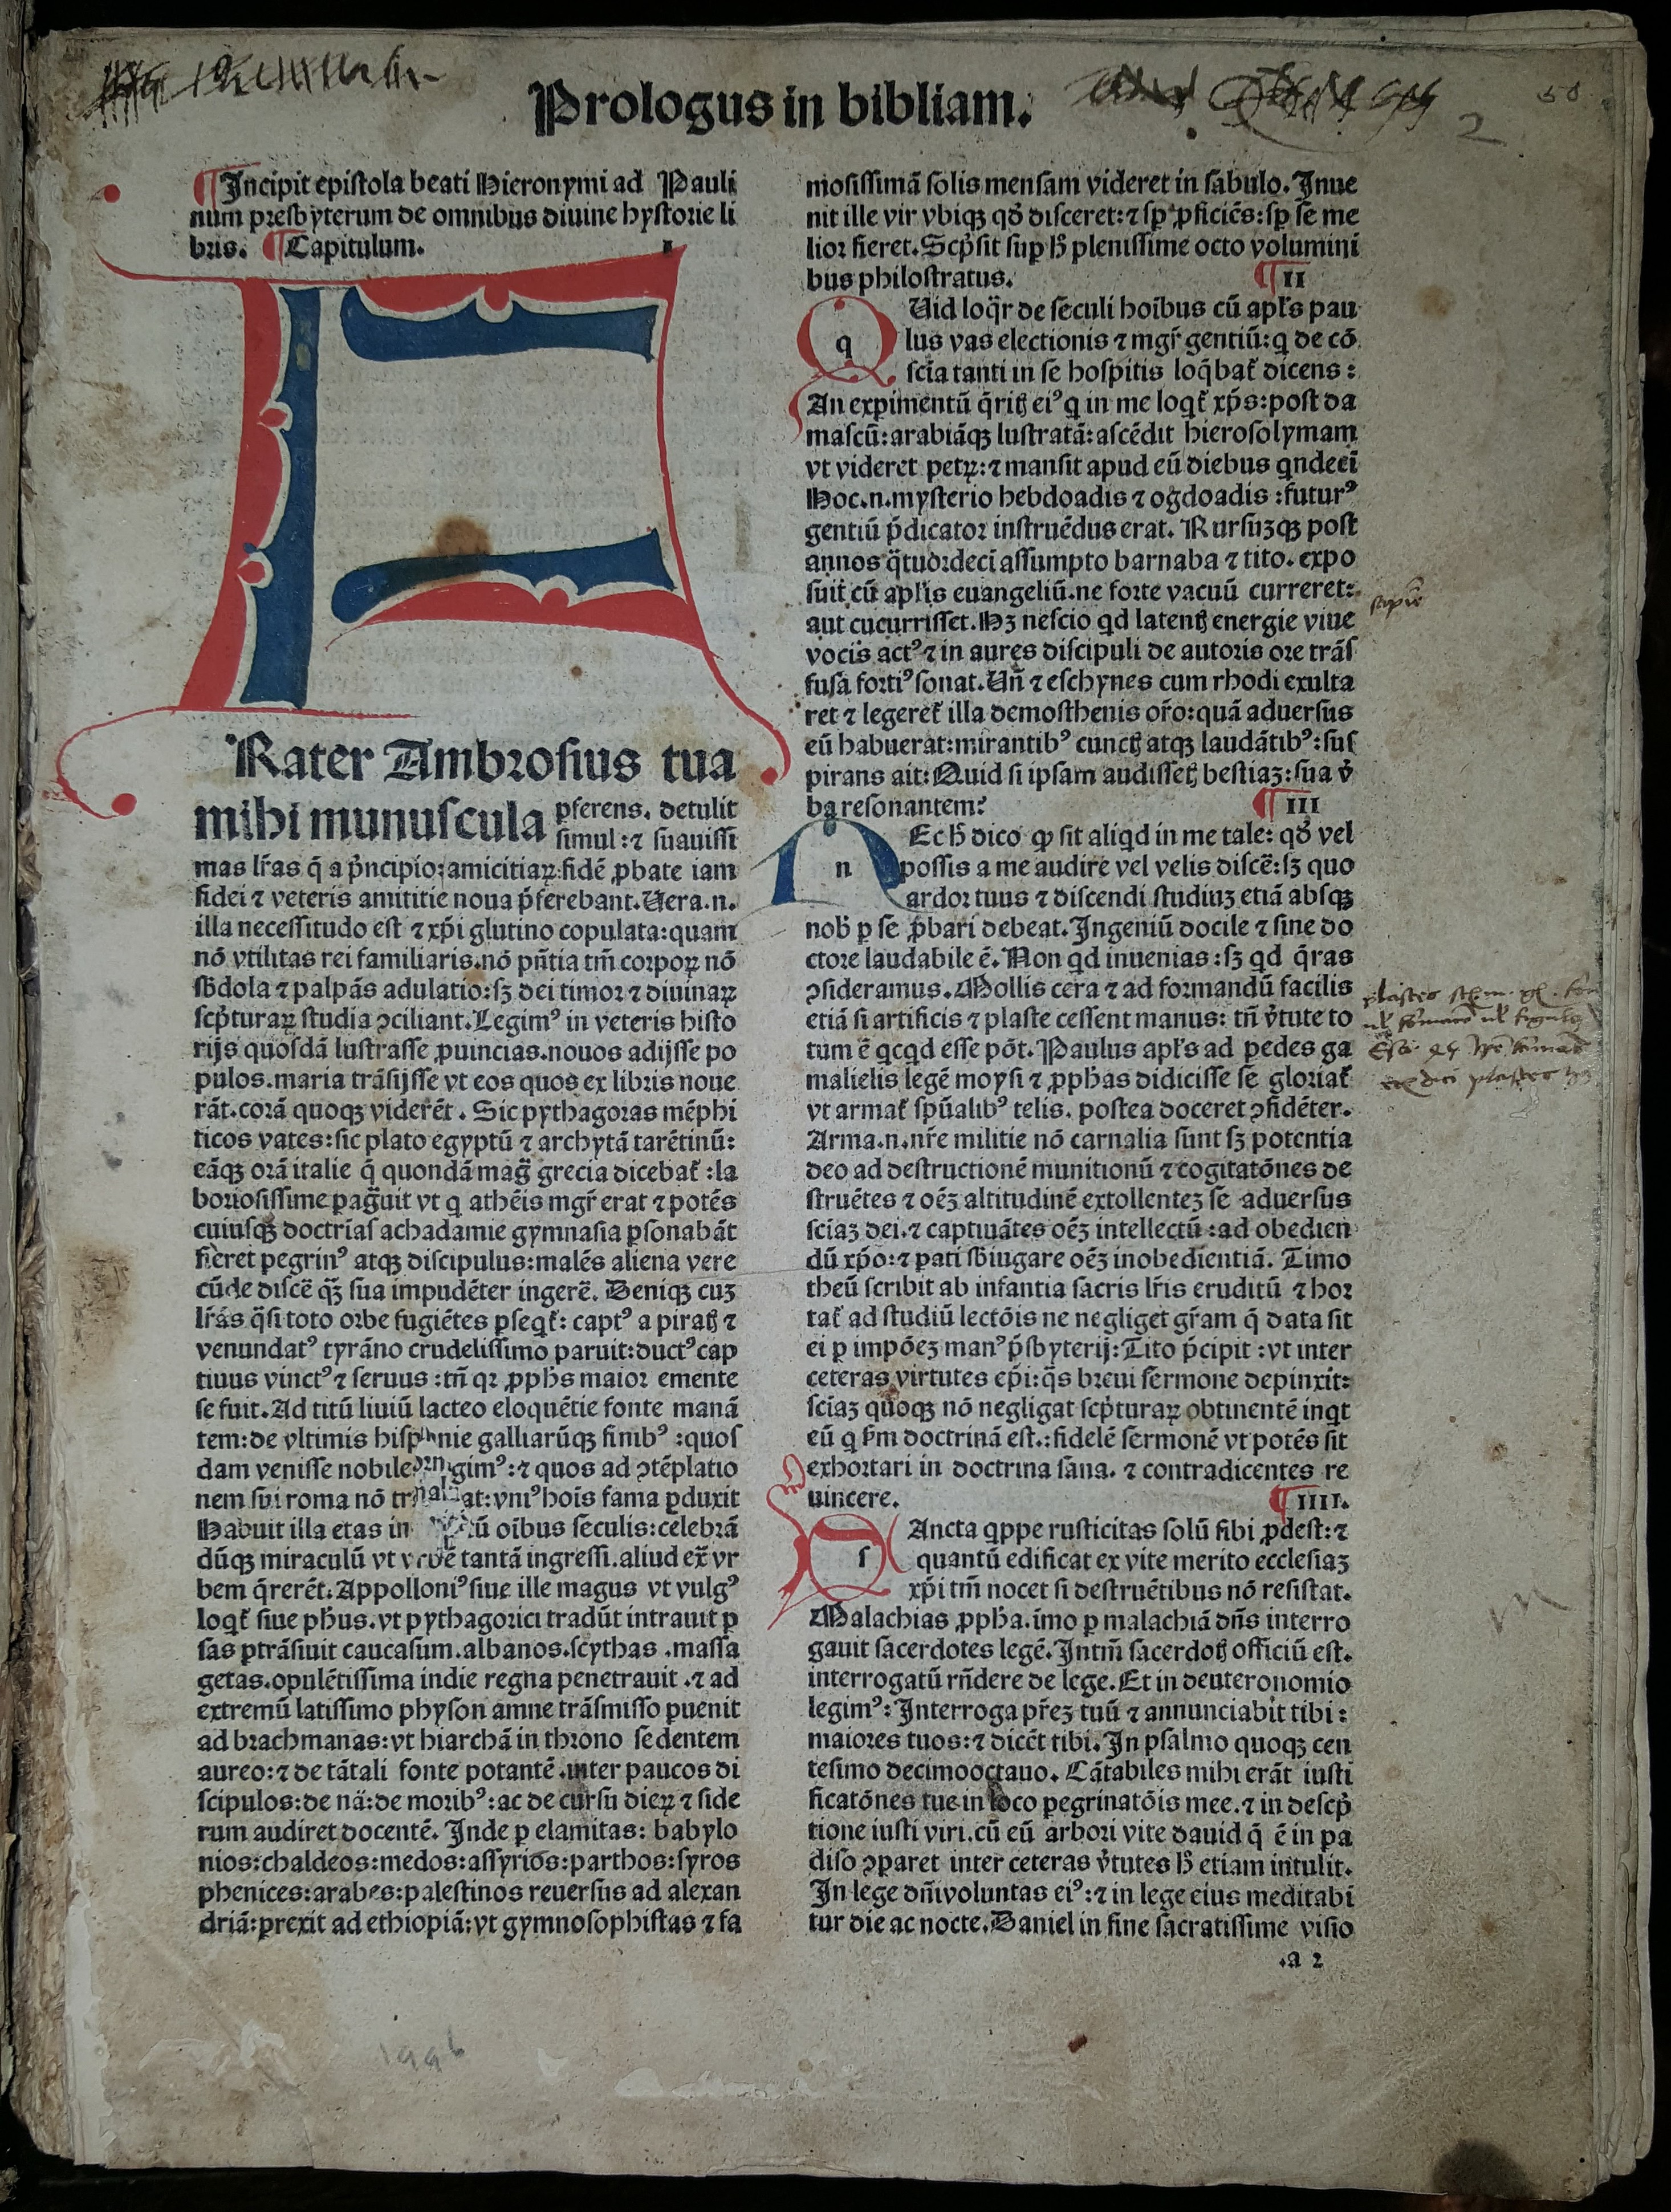 Prologus in bibliam.
2
50
¶Incipit epistola beati Hieronymi ad Pauli
num presbyterum de omnibus diuine hystorie li
bris. ¶Capitulum. I
F
Rater Ambrosius tua
mihi munuscula ꝑferens. detulit
simul: ⁊ suauissi
mas lr̃as q̃ a pͥncipio: amicitiaꝝ: fidē ꝓbate iam
fidei ⁊ veteris amititie noua p̃ferebant. Uera .n.
illa necessitudo est ⁊ xp̃i glutino copulata: quam
nō vtilitas rei familiaris. nō pñtia tm̃ corpoꝝ nō
sb̃dola ⁊ palpās adulatio: sꝫ dei timor ⁊ diuinaꝝ
scpͥturaꝝ studia ↄciliant. Legimꝰ in veteris histo
rijs quosdā lustrasse ꝓuincias. nouos adijsse po
pulos. maria trāsijsse vt eos quos ex libris noue
rāt. corā quoqꝫ viderēt. Sic pythagoras mēphi
ticos vates: sic plato egyptū ⁊ archytā tarētinū:
eāqꝫ orā italie q̃ quondā mag̃ grecia dicebat̃: la
boriosissime pag̃uit vt q athēis mgr̃ erat ⁊ potēs
cuiusqꝫ doctrīas achadamie gymnasia ꝑsonabāt
fieret pegrinꝰ atqꝫ discipulus: malēs aliena vere
cūde discē̃ q̃ꝫ sua impudēter ingerē̃. Deniqꝫ cuꝫ
lr̃ás q̃si toto orbe fugiētes ꝑseqt̃: captꝰ a piratꝭ ⁊
venundatꝰ tyrāno crudelissimo paruit: ductꝰ cap
tiuus vinctꝰ ⁊ seruus: tñ qꝛ ꝓpħs maior emente
se fuit. Ad titū liuiū lacteo eloquētie fonte manā
tem: de vltimis hispanie galliarūqꝫ finibꝰ: quos
dam venisse nobile gimꝰ: ⁊ quos ad ↄtēplatio
nem sui roma nō tr at: vniꝰ hoīs fama ꝑduxit
Habuit illa etas in ū oībus seculis: celebrā
dūqꝫ miraculū vt vrbē tantā ingressi. aliud ex̃ vr
bem q̃rerēt. Appolloniꝰ siue ille magus vt vulgꝰ
loqt̃ siue pħus. vt pythagorici tradūt intrauit ꝑ
sas ꝑtrāsiuit caucasum. albanos. scythas. massa
getas. opulētissima indie regna penetrauit. ⁊ ad
extremū latissimo physon amne trāsmisso ꝑuenit
ad brachmanas: vt hiarchā in throno sedentem
aureo: ⁊ de tātali fonte potantē. inter paucos di
scipulos: de nā: de moribꝰ: ac de cursu dieꝝ ⁊ side
rum audiret docentē. Inde ꝑ elamitas: babylo
nios: chaldeos: medos: assyrios: parthos: syros
phenices: arabes: palestinos reuersus ad alexan
driā: perexit ad ethiopiā: vt gymnosophistas ⁊ fa
mosissimā solis mensam videret in sabulo. Inue
nit ille vir vbiqꝫ qd̓ disceret: ⁊ sꝑ ꝓficiēs: sꝑ se me
lior fieret. Scpͥsit suꝑ ħ plenissime octo voluminī
bus philostratus. ¶II
q
Uid loq̃r de seculi hoībus cū apl̃s pau
lus vas electionis ⁊ mgr̃ gentiū: q de cō
scīa tanti in se hospitis loq̃bat̃ dicens:
An exꝑimentū q̃ritꝭ eiꝰ q in me loqt̃ xp̃s: post da
mascū: arabiāqꝫ lustratā: ascēdit hierosolymam
vt videret petꝝ: ⁊ mansit apud eū diebus qndeci
Hoc .n. mysterio hebdoadis ⁊ ogdoadis: futurꝰ
gentiū p̃dicator instruēdus erat. Rursuꝫqꝫ post
annos q̃tuordeci assumpto barnaba ⁊ tito. expo
suit cū apl̃is euangeliū. ne forte vacuū curreret:
aut cucurrisset. Hꝫ nescio qd latentꝭ energie viue
vocis actꝰ ⁊ in aures discipuli de autoris ore trāſ
fusa fortiꝰ sonat. Uñ ⁊ eschynes cum rhodi exulta
ret ⁊ legeret̃ illa demosthenis or̃o: quā aduersus
eū habuerat: mirantibꝰ cunctꝭ atqꝫ laudātibꝰ: sus
pirans ait: Quid si ipsam audissetꝭ bestiaꝫ: sua v̓
ba resonantem? ¶III
n
Ec ħ dico ꝙ sit aliqd in me tale: qd̓ vel
possis a me audire vel velis discē̃: sꝫ quo
ardor tuus ⁊ discendi studiuꝫ etiā absqꝫ
nob̃ ꝑ se ꝓbari debeat. Ingeniū docile ⁊ sine do
ctore laudabile ē. Non qd inuenias: sꝫ qd q̃ras
ↄsideramus. Mollis cera ⁊ ad formandū facilis
etiā si artificis ⁊ plaste cessent manus: tñ v̓tute to
tum ē qcqd esse pōt. Paulus apl̃s ad pedes ga
malielis legē moysi ⁊ ꝓpħas didicisse se gloriat̃
vt armat̃ spūalibꝰ telis. postea doceret ↄfidēter.
Arma .n. nr̃e militie nō carnalia sunt sꝫ potentia
deo ad destructionē munitionū ⁊ cogitatōnes de
struētes ⁊ oēꝫ altitudinē extollenteꝫ se aduersus
sciaꝫ dei. ⁊ captiuātes oēꝫ intellectū: ad obedien
dū xp̃o: ⁊ pati sb̃iugare oēꝫ inobedientiā. Timo
theū scribit ab infantia sacris lr̃is eruditū ⁊ hor
tat̃ ad studiū lectōis ne negliget gr̃am q̃ data sit
ei ꝑ impōeꝫ manꝰ p̃sbyterij: Tito p̃cipit: vt inter
ceteras virtutes ep̃i: q̃s breui sermone depinxit:
sciaꝫ quoqꝫ nō negligat scpͥturaꝝ obtinentē inqt
eū q ẜm doctrinā est.: fidelē sermonē vt potēs sit
exhortari in doctrina sana. ⁊ contradicentes re
uincere. ¶IIII.
s
Ancta qppe rusticitas solū sibi ꝓdest: ⁊
quantū edificat ex vite merito ecclesiaꝫ
xp̃i tm̃ nocet si destruētibus nō resistat.
Malachias ꝓpħa. imo ꝑ malachiā dñs interro
gauit sacerdotes legē. Intm̃ sacerdotꝭ officiū est.
interrogatū rñdere de lege. Et in deuteronomio
legimꝰ: Interroga pr̃eꝫ tuū ⁊ annunciabit tibi:
maiores tuos: ⁊ dicēt tibi. In psalmo quoqꝫ cen
tesimo decimooctauo. Cātabiles mihi erāt iusti
ficatōnes tue in loco pegrinatōis mee. ⁊ in descpͥ
tione iusti viri. cū eū arbori vite dauid q̃ ē in pa
diso ↄparet inter ceteras v̓tutes ħ etiam intulit.
In lege dñi voluntas eiꝰ: ⁊ in lege eius meditabī
tur die ac nocte. Daniel in fine sacratissime visio
.a 2